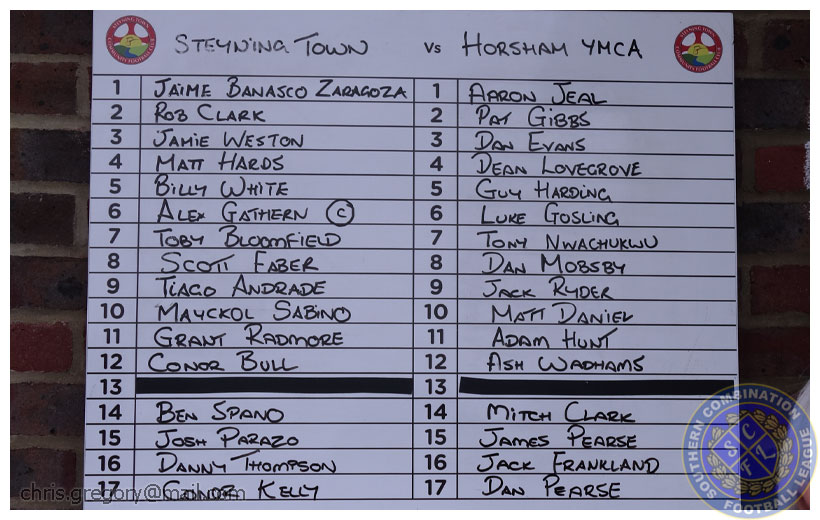 STEYNING TOWN vs HORSHAM YMCA
1 JAIME BANASCO ZARAGOZA 1 AARON JEAL
2 ROB CLARK 2 PAT GIBBS
3 JAMIE WESTON 3 DAN EVANS
4 MATT HARDS 4 DEAN LOVEGROVE
5 BILLY WHITE 5 GUY HARDING
6 ALEX GATHERN C 6 LUKE GOSLING
7 TOBY BLOOMFIELD 7 TONY NWACHUKWU
8 SCOTT FABER 8 DAN MOBSBY
9 TIAGO ANDRADE 9 JACK RYDER
10 MAYCKOL SABINO 10 MATT DANIEL
11 GRANT RADMORE 11 ADAM HUNT
12 CONOR BULL 12 ASH WADHAMS
13 13
14 BEN SPANO 14 MITCH CLARK
15 JOSH PARAZO 15 JAMES PEARSE
16 DANNY THOMPSON 16 JACK FRANKLAND
17 CONOR KELLY 17 DAN PEARSE
chris.gregory@mail.com
SOUTHERN COMBINATION FOOTBALL LEAGUE
SCFL